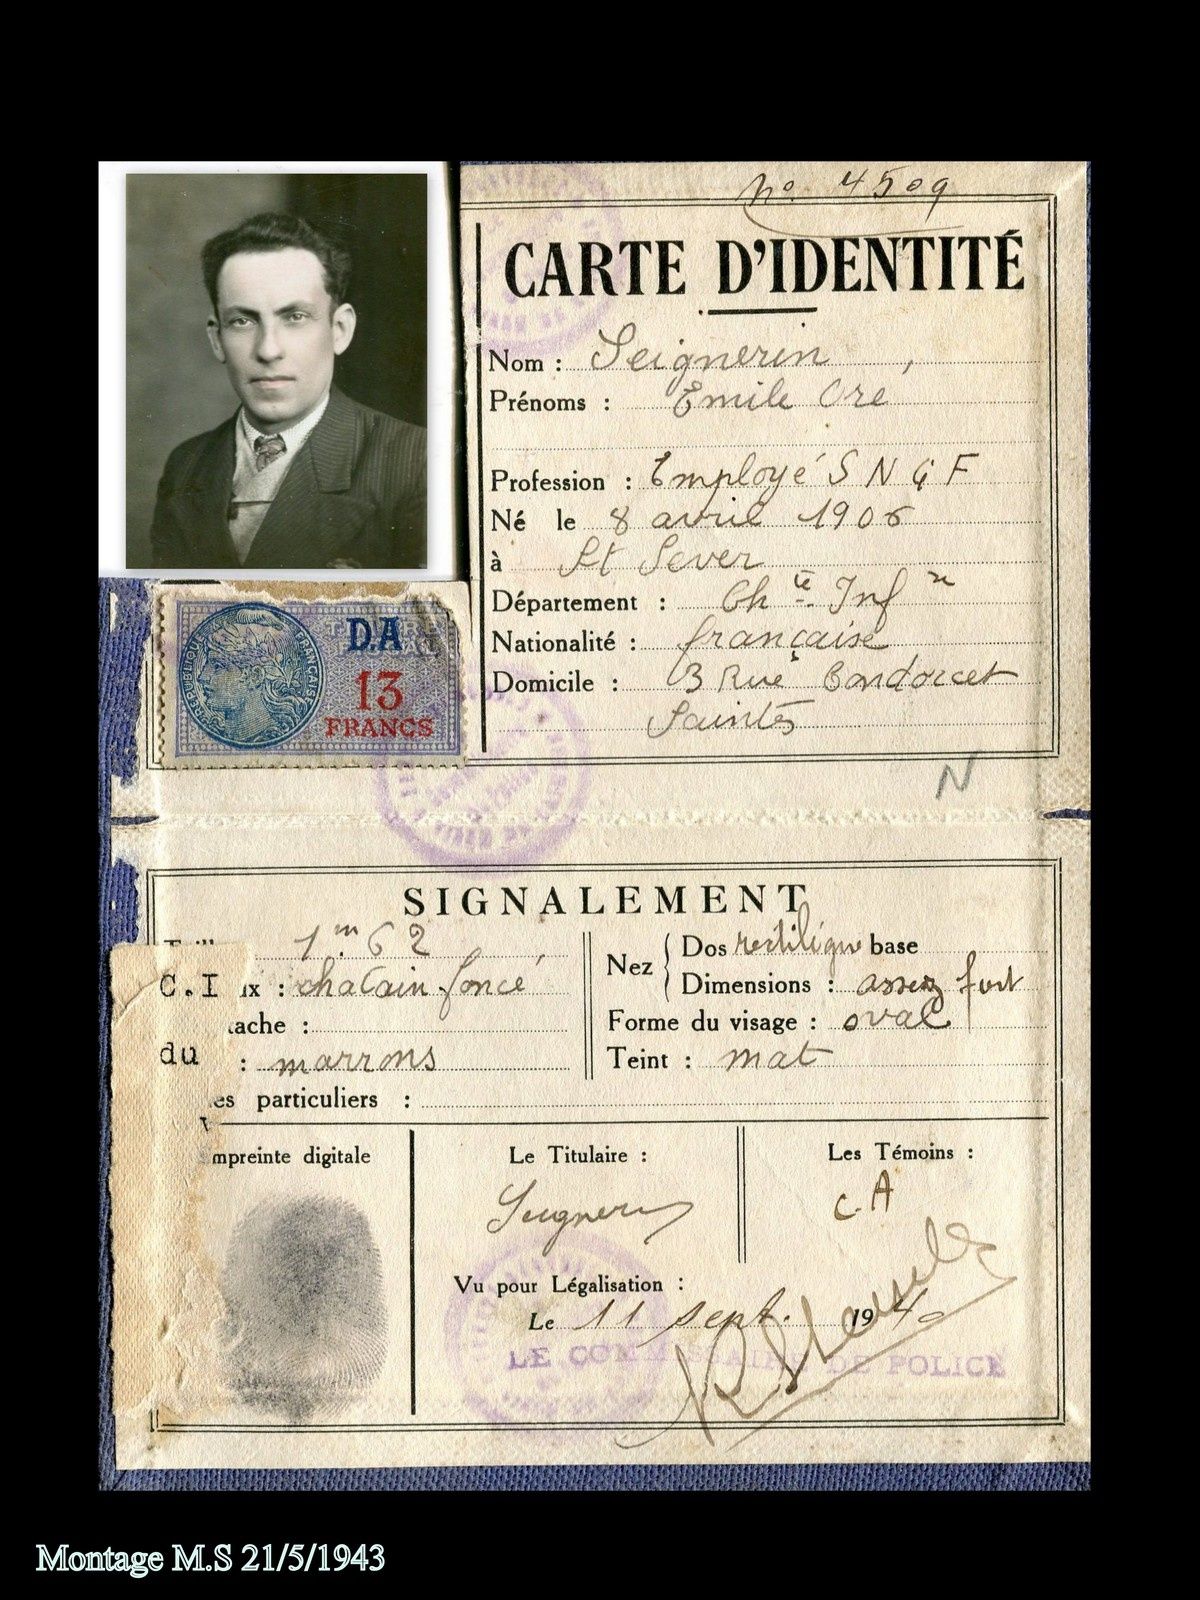 No. 4509
CARTE D'IDENTITÉ
Nom : Seignerin,
Prénoms : Emile Ore
Profession : Employé S N C F
Né le 8 avril 1906
à St Sever
Département : Ch te. Inf re
Nationalité : française
Domicile : 3 Rue Condorcet
Saintes
RÉPUBLIQUE FRANÇAISE
D.A
13
FRANCS
N
SIGNALEMENT
1m 62
C.I
ux : chatain foncé
tache :
du
: marrons
es particuliers :
Nez
Dos rectiligne base
Dimensions : assez fort
Forme du visage : oval
Teint : mat
mpreinte digitale
Le Titulaire :
Seignerin
Les Témoins :
C.A
Vu pour Légalisation :
Le 11 sept. 1940
LE COMMISSAIRE DE POLICE
Montage M.S 21/5/1943